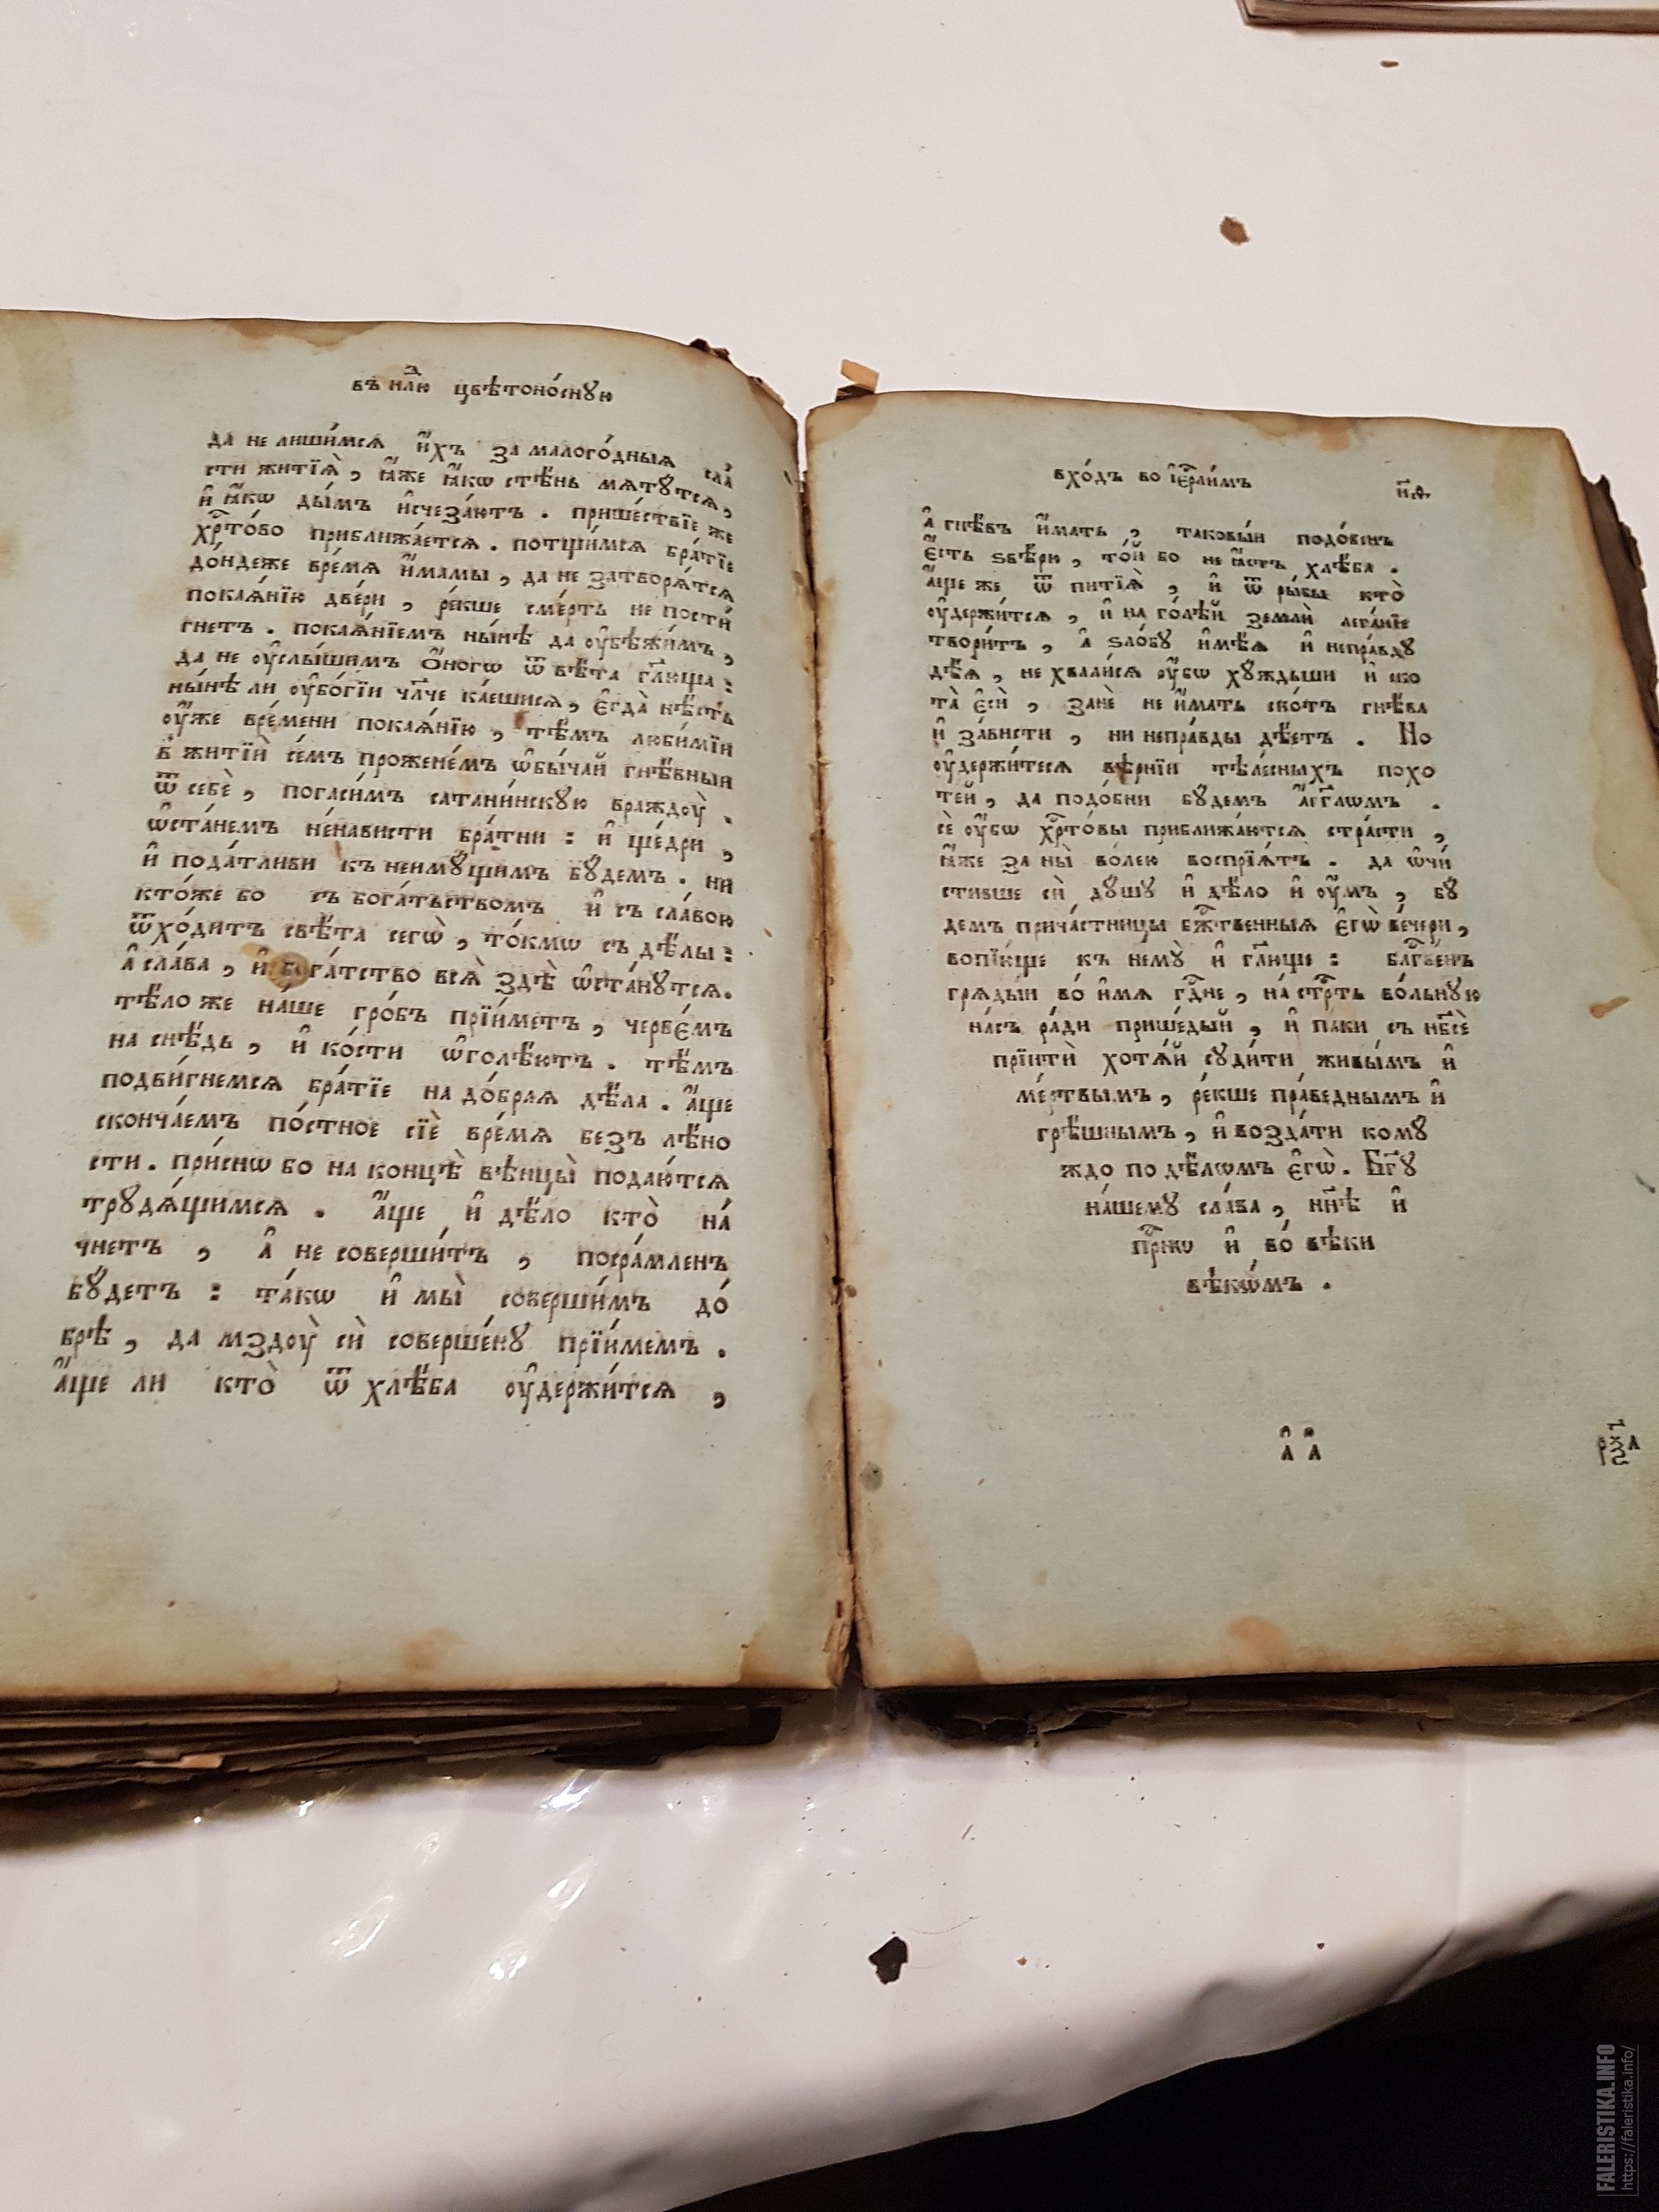 въ нлⷣю цвѣтоно́сную
да не лиши́мсѧ и҆́хъ за малого́дныѧ сла́
сти житїѧ̀, ꙗ҆́же ꙗ҆́кѡ стѣ́нь мѧту́тсѧ,
и҆ ꙗ҆́кѡ ды́мъ и҆счеза́ютъ. прише́ствїе же
хрⷭ҇то́во приближа́етсѧ. потщи́мсѧ бра́тїе
до́ндеже вре́мѧ и҆́мамы, да не затворѧ́тсѧ
покаѧ́нїю две́ри, ре́кше сме́рть не пости́
гнетъ. покаѧ́нїемъ ны́нѣ да ᲂу҆бѣжи́мъ,
да не ᲂу҆слы́шимъ ѻ҆́ногѡ ѿвѣ́та гл҃юща:
ны́нѣ ли ᲂу҆бо́гїи чл҃че ка́ешисѧ, є҆гда̀ нѣ́сть
ᲂу҆́же вре́мени покаѧ́нїю, тѣ́мъ люби́мїи
в житїѝ се́мъ проже́немъ ѡ҆бы́чай гнѣ́вныи
ѿ себѐ, погаси́мъ сатани́нскую враждꙋ̀.
ѡ҆ста́немъ не́нависти бра́тни: и҆ ще́дри,
и҆ пода́тливи къ неимꙋ́щимъ бꙋ́демъ. ни
кто́же бо съ бога́тьствомъ и҆ съ сла́вою
ѿхо́дитъ свѣ́та сегѡ̀, то́кмѡ съ дѣ́лы:
а҆ сла́ва, и҆ бога́тство всѧ̀ здѣ̀ ѡ҆ста́нутсѧ.
тѣ́ло же на́ше гро́бъ прїи́метъ, черве́мъ
на снѣ́дь, и҆ ко́сти ѡ҆голѣ́ютъ. тѣ́мъ
подви́гнемсѧ бра́тїе на до́браѧ дѣ́ла. а҆́ще
сконча́емъ по́стное сїѐ вре́мѧ безъ лѣ́но
сти. при́снѡ бо на концѣ̀ вѣнцы̀ подаю́тсѧ
трꙋдѧ́щимсѧ. а҆́ще и҆ дѣ́ло кто̀ на́
чнетъ, а҆ не соверши́тъ, посра́мленъ
бꙋ́детъ: та́кѡ и҆ мы̀ соверши́мъ до́
брѣ, да мздꙋ̀ сѝ соверше́нꙋ прїи́мемъ.
а҆́ще ли кто̀ ѿ хлѣ́ба ᲂу҆держи́тсѧ,
вхо́дъ во і҆ерⷭ҇ли́мъ
н҃ѳ
а҆ гнѣ́въ и҆́мать, таковы́и подо́бенъ
є҆́сть ѕвѣ́ри, то́й бо не ꙗ҆́стъ хлѣ́ба.
а҆́ще же ѿ питїѧ̀, и҆ ѿ ры́бы кто̀
ᲂу҆держи́тсѧ, и҆ на го́лѣй землѝ лега́нїе
твори́тъ, а҆ ѕло́бꙋ и҆мѣ́ѧ и҆ непра́вдꙋ
дѣ́ѧ, не хвали́сѧ ᲂу҆́бѡ хꙋ́ждьши и҆ ско
та̀ є҆сѝ, занѐ не и҆́мать ско́тъ гнѣ́ва
и҆ за́висти, ни непра́вды дѣ́етъ. Но
ᲂу҆держи́тесѧ вѣ́рнїи тѣле́сныхъ похо
те́й, да подо́бни бꙋ́демъ а҆́гг҃лѡмъ.
сѐ ᲂу҆́бѡ хрⷭ҇то́вы приближа́ютсѧ стра́сти,
ꙗ҆́же за ны̀ во́лею воспрїѧ́тъ. да ѡ҆чи́
стивше сѝ дꙋ́шꙋ и҆ дѣ́ло и҆ ᲂу҆́мъ, бꙋ́
демъ прича́стницы бжⷭ҇твенныѧ є҆гѡ̀ ве́чери,
вопїю́ще къ немꙋ̀ и҆ гл҃юще: блгⷭ҇ве́нъ
грѧды́и во и҆́мѧ гдⷭ҇не, на стрⷭ҇ть во́льнꙋю
на́съ ра́ди прише́дый, и҆ паки съ нб҃сѐ
прїитѝ хотѧ́й сꙋди́ти живы́мъ и҆
ме́ртвымъ, ре́кше пра́веднымъ и҆
грѣ́шнымъ, и҆ возда́ти комꙋ́
ждо по дѣлѡмъ є҆гѡ̀. Бг҃ꙋ
на́шемꙋ сла́ва, нн҃ѣ и҆
прⷭ҇нѡ и҆ во́ вѣки
вѣкѡ́мъ.
а҆ а҆
FALERISTIKA.INFO
https://faleristika.info/